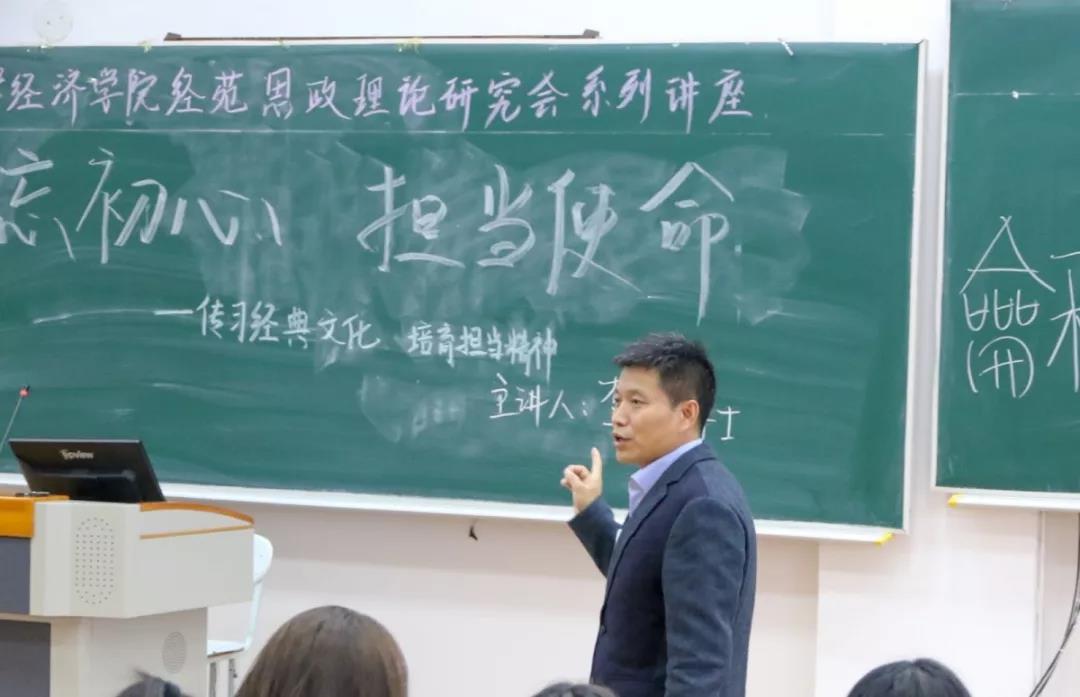 经济学院经苑思政理论研究会系列讲座
忘初心 担当使命
——传习经典文化 培育担当精神
主讲人： 士